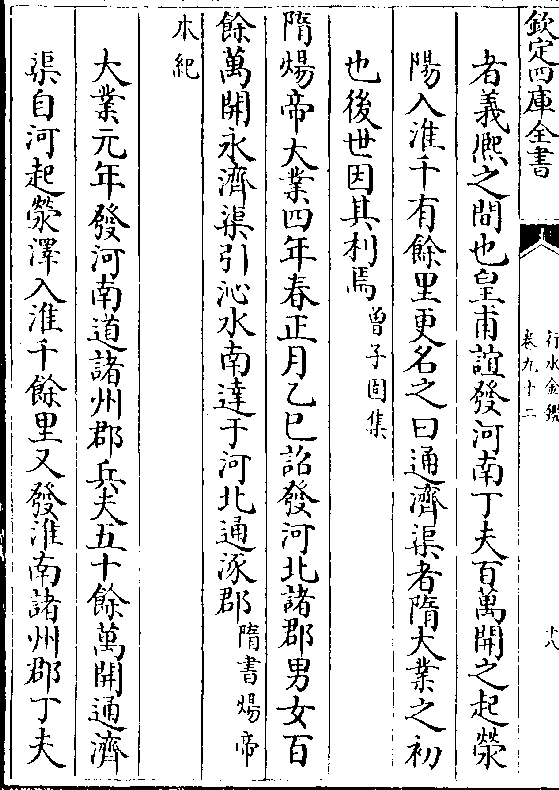 欽定四庫全書
行水金鑑
卷九十二
十八
者義熙之間也皇甫誼發河南丁夫百萬開之起滎
陽入淮千有餘里更名之曰通濟渠者隋大業之初
也後世因其利焉曾子固集
隋煬帝大業四年春正月乙巳詔發河北諸郡男女百
餘萬開永濟渠引沁水南達于河北通涿郡隋書煬帝
本紀
大業元年發河南道諸州郡兵夫五十餘萬開通濟
渠自河起滎澤入淮千餘里又發淮南諸州郡丁夫